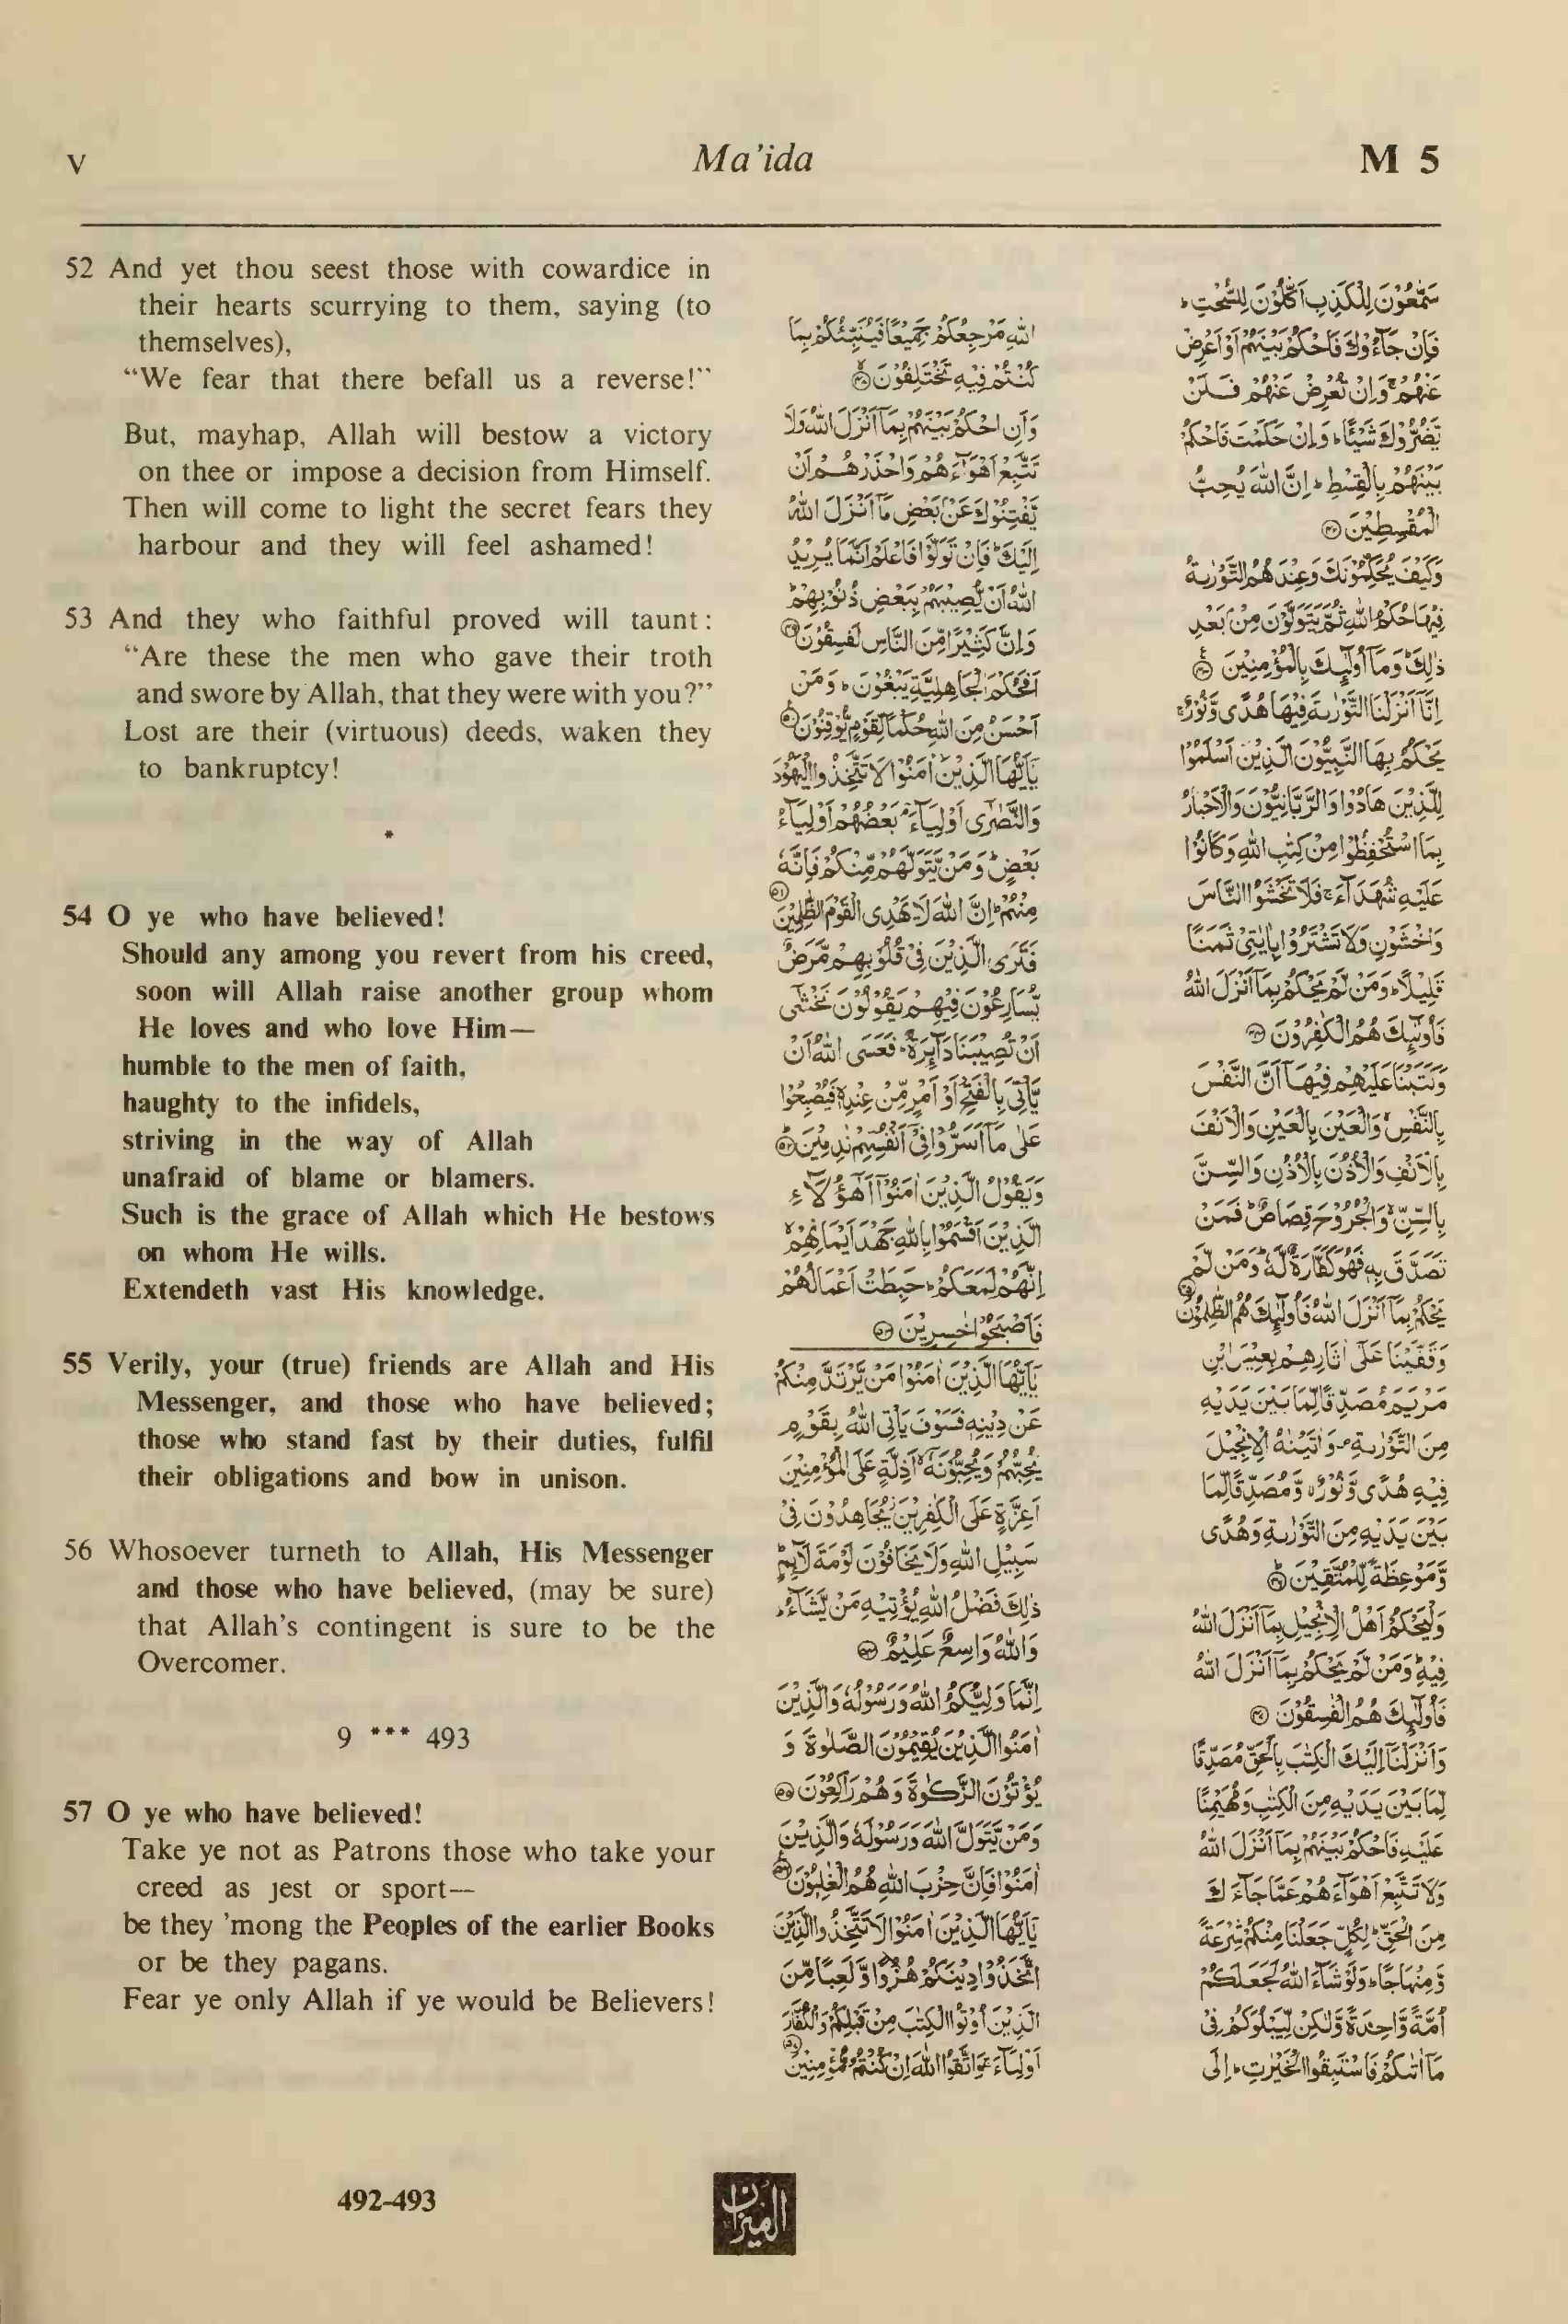 V Ma'ida M 5
52 And yet thou seest those with cowardice in
their hearts scurrying to them, saying (to
themselves),
"We fear that there befall us a reverse!"
But, mayhap, Allah will bestow a victory
on thee or impose a decision from Himself.
Then will come to light the secret fears they
harbour and they will feel ashamed!
53 And they who faithful proved will taunt:
"Are these the men who gave their troth
and swore by Allah, that they were with you?"
Lost are their (virtuous) deeds, waken they
to bankruptcy!
*
54 O ye who have believed!
Should any among you revert from his creed,
soon will Allah raise another group whom
He loves and who love Him—
humble to the men of faith,
haughty to the infidels,
striving in the way of Allah
unafraid of blame or blamers.
Such is the grace of Allah which He bestows
on whom He wills.
Extendeth vast His knowledge.
55 Verily, your (true) friends are Allah and His
Messenger, and those who have believed;
those who stand fast by their duties, fulfil
their obligations and bow in unison.
56 Whosoever turneth to Allah, His Messenger
and those who have believed, (may be sure)
that Allah's contingent is sure to be the
Overcomer.
9 *** 493
57 O ye who have believed!
Take ye not as Patrons those who take your
creed as jest or sport—
be they 'mong the Peoples of the earlier Books
or be they pagans.
Fear ye only Allah if ye would be Believers!
سَمّٰعُوْنَ لِلْكَذِبِ اَكّٰلُوْنَ لِلسُّحْتِ ؕ
فَاِنْ جَآءُوْكَ فَاحْكُمْ بَيْنَهُمْ اَوْ اَعْرِضْ
عَنْهُمْ ۚ وَاِنْ تُعْرِضْ عَنْهُمْ فَلَنْ
يَّضُرُّوْكَ شَيْئًا ؕ وَاِنْ حَكَمْتَ فَاحْكُمْ
بَيْنَهُمْ بِالْقِسْطِ ؕ اِنَّ اللّٰهَ يُحِبُّ
الْمُقْسِطِيْنَ ۝۴۲
وَكَيْفَ يُحَكِّمُوْنَكَ وَعِنْدَهُمُ التَّوْرٰىةُ
فِيْهَا حُكْمُ اللّٰهِ ثُمَّ يَتَوَلَّوْنَ مِنْۢ بَعْدِ
ذٰلِكَ ؕ وَمَاۤ اُولٰٓئِكَ بِالْمُؤْمِنِيْنَ ۝۴۳
اِنَّاۤ اَنْزَلْنَا التَّوْرٰىةَ فِيْهَا هُدًى وَّنُوْرٌ ۚ
يَحْكُمُ بِهَا النَّبِيُّوْنَ الَّذِيْنَ اَسْلَمُوْا
لِلَّذِيْنَ هَادُوْا وَالرَّبَّانِيُّوْنَ وَالْاَحْبَارُ
بِمَا اسْتُحْفِظُوْا مِنْ كِتٰبِ اللّٰهِ وَكَانُوْا
عَلَيْهِ شُهَدَآءَ ۚ فَلَا تَخْشَوُا النَّاسَ
وَاخْشَوْنِ وَلَا تَشْتَرُوْا بِاٰيٰتِيْ ثَمَنًا
قَلِيْلًا ؕ وَمَنْ لَّمْ يَحْكُمْ بِمَاۤ اَنْزَلَ اللّٰهُ
فَاُولٰٓئِكَ هُمُ الْكٰفِرُوْنَ ۝۴۴
وَكَتَبْنَا عَلَيْهِمْ فِيْهَاۤ اَنَّ النَّفْسَ
بِالنَّفْسِ ۙ وَالْعَيْنَ بِالْعَيْنِ وَالْاَنْفَ
بِالْاَنْفِ وَالْاُذُنَ بِالْاُذُنِ وَالسِّنَّ
بِالسِّنِّ ۙ وَالْجُرُوْحَ قِصَاصٌ ؕ فَمَنْ
تَصَدَّقَ بِهٖ فَهُوَ كَفَّارَةٌ لَّهٗ ؕ وَمَنْ لَّمْ
يَحْكُمْ بِمَاۤ اَنْزَلَ اللّٰهُ فَاُولٰٓئِكَ هُمُ الظّٰلِمُوْنَ ۝۴۵
وَقَفَّيْنَا عَلٰۤى اٰثَارِهِمْ بِعِيْسَى ابْنِ
مَرْيَمَ مُصَدِّقًا لِّمَا بَيْنَ يَدَيْهِ
مِنَ التَّوْرٰىةِ ۪ وَاٰتَيْنٰهُ الْاِنْجِيْلَ
فِيْهِ هُدًى وَّنُوْرٌ ۙ وَّمُصَدِّقًا لِّمَا
بَيْنَ يَدَيْهِ مِنَ التَّوْرٰىةِ وَهُدًى
وَّمَوْعِظَةً لِّلْمُتَّقِيْنَ ۝۴۶
وَلْيَحْكُمْ اَهْلُ الْاِنْجِيْلِ بِمَاۤ اَنْزَلَ اللّٰهُ
فِيْهِ ؕ وَمَنْ لَّمْ يَحْكُمْ بِمَاۤ اَنْزَلَ اللّٰهُ
فَاُولٰٓئِكَ هُمُ الْفٰسِقُوْنَ ۝۴۷
وَاَنْزَلْنَاۤ اِلَيْكَ الْكِتٰبَ بِالْحَقِّ مُصَدِّقًا
لِّمَا بَيْنَ يَدَيْهِ مِنَ الْكِتٰبِ وَمُهَيْمِنًا
عَلَيْهِ فَاحْكُمْ بَيْنَهُمْ بِمَاۤ اَنْزَلَ اللّٰهُ
وَلَا تَتَّبِعْ اَهْوَآءَهُمْ عَمَّا جَآءَكَ
مِنَ الْحَقِّ ؕ لِكُلٍّ جَعَلْنَا مِنْكُمْ شِرْعَةً
وَّمِنْهَاجًا ؕ وَلَوْ شَآءَ اللّٰهُ لَجَعَلَكُمْ
اُمَّةً وَّاحِدَةً وَّلٰكِنْ لِّيَبْلُوَكُمْ فِيْ
مَاۤ اٰتٰىكُمْ فَاسْتَبِقُوا الْخَيْرٰتِ ؕ اِلَى
اللّٰهِ مَرْجِعُكُمْ جَمِيْعًا فَيُنَبِّئُكُمْ بِمَا
كُنْتُمْ فِيْهِ تَخْتَلِفُوْنَ ۝۴۸
وَاَنِ احْكُمْ بَيْنَهُمْ بِمَاۤ اَنْزَلَ اللّٰهُ وَلَا
تَتَّبِعْ اَهْوَآءَهُمْ وَاحْذَرْهُمْ اَنْ
يَّفْتِنُوْكَ عَنْۢ بَعْضِ مَاۤ اَنْزَلَ اللّٰهُ
اِلَيْكَ ؕ فَاِنْ تَوَلَّوْا فَاعْلَمْ اَنَّمَا يُرِيْدُ
اللّٰهُ اَنْ يُّصِيْبَهُمْ بِبَعْضِ ذُنُوْبِهِمْ ؕ
وَاِنَّ كَثِيْرًا مِّنَ النَّاسِ لَفٰسِقُوْنَ ۝۴۹
اَفَحُكْمَ الْجَاهِلِيَّةِ يَبْغُوْنَ ؕ وَمَنْ
اَحْسَنُ مِنَ اللّٰهِ حُكْمًا لِّقَوْمٍ يُّوْقِنُوْنَ ۝۵۰
يٰۤاَيُّهَا الَّذِيْنَ اٰمَنُوْا لَا تَتَّخِذُوا الْيَهُوْدَ
وَالنَّصٰرٰۤى اَوْلِيَآءَ ۘ بَعْضُهُمْ اَوْلِيَآءُ
بَعْضٍ ؕ وَمَنْ يَّتَوَلَّهُمْ مِّنْكُمْ فَاِنَّهٗ
مِنْهُمْ ؕ اِنَّ اللّٰهَ لَا يَهْدِى الْقَوْمَ الظّٰلِمِيْنَ ۝۵۱
فَتَرَى الَّذِيْنَ فِيْ قُلُوْبِهِمْ مَّرَضٌ
يُّسَارِعُوْنَ فِيْهِمْ يَقُوْلُوْنَ نَخْشٰۤى
اَنْ تُصِيْبَنَا دَآئِرَةٌ ؕ فَعَسَى اللّٰهُ اَنْ
يَّاْتِيَ بِالْفَتْحِ اَوْ اَمْرٍ مِّنْ عِنْدِهٖ فَيُصْبِحُوْا
عَلٰى مَاۤ اَسَرُّوْا فِيْۤ اَنْفُسِهِمْ نٰدِمِيْنَ ۝۵۲
وَيَقُوْلُ الَّذِيْنَ اٰمَنُوْۤا اَهٰۤؤُلَآءِ
الَّذِيْنَ اَقْسَمُوْا بِاللّٰهِ جَهْدَ اَيْمَانِهِمْ ۙ
اِنَّهُمْ لَمَعَكُمْ ؕ حَبِطَتْ اَعْمَالُهُمْ
فَاَصْبَحُوْا خٰسِرِيْنَ ۝۵۳
يٰۤاَيُّهَا الَّذِيْنَ اٰمَنُوْا مَنْ يَّرْتَدَّ مِنْكُمْ
عَنْ دِيْنِهٖ فَسَوْفَ يَاْتِى اللّٰهُ بِقَوْمٍ
يُّحِبُّهُمْ وَيُحِبُّوْنَهٗۤ ۙ اَذِلَّةٍ عَلَى الْمُؤْمِنِيْنَ
اَعِزَّةٍ عَلَى الْكٰفِرِيْنَ ؗ يُجَاهِدُوْنَ فِيْ
سَبِيْلِ اللّٰهِ وَلَا يَخَافُوْنَ لَوْمَةَ لَآئِمٍ ؕ
ذٰلِكَ فَضْلُ اللّٰهِ يُؤْتِيْهِ مَنْ يَّشَآءُ ؕ
وَاللّٰهُ وَاسِعٌ عَلِيْمٌ ۝۵۴
اِنَّمَا وَلِيُّكُمُ اللّٰهُ وَرَسُوْلُهٗ وَالَّذِيْنَ
اٰمَنُوا الَّذِيْنَ يُقِيْمُوْنَ الصَّلٰوةَ وَ
يُؤْتُوْنَ الزَّكٰوةَ وَهُمْ رٰكِعُوْنَ ۝۵۵
وَمَنْ يَّتَوَلَّ اللّٰهَ وَرَسُوْلَهٗ وَالَّذِيْنَ
اٰمَنُوْا فَاِنَّ حِزْبَ اللّٰهِ هُمُ الْغٰلِبُوْنَ ۝۵۶
يٰۤاَيُّهَا الَّذِيْنَ اٰمَنُوْا لَا تَتَّخِذُوا الَّذِيْنَ
اتَّخَذُوْا دِيْنَكُمْ هُزُوًا وَّلَعِبًا مِّنَ
الَّذِيْنَ اُوْتُوا الْكِتٰبَ مِنْ قَبْلِكُمْ وَالْكُفَّارَ
اَوْلِيَآءَ ۚ وَاتَّقُوا اللّٰهَ اِنْ كُنْتُمْ مُّؤْمِنِيْنَ ۝۵۷
492-493
الميزان